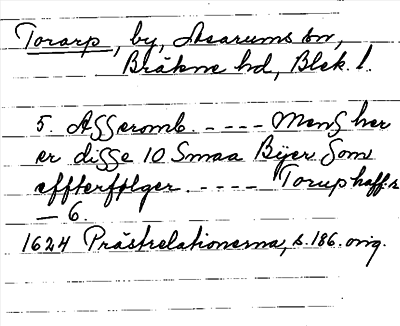 Torarp, by, Asarums sn,
Bräkne hd, Blek. l.
5. Aggeromb. - - - - - Meng her
er disse 10 Smaa Byer som
effterfølger - - - - - Torup haffr
— 6.
1624 Prästrelationerna, s. 186. orig.